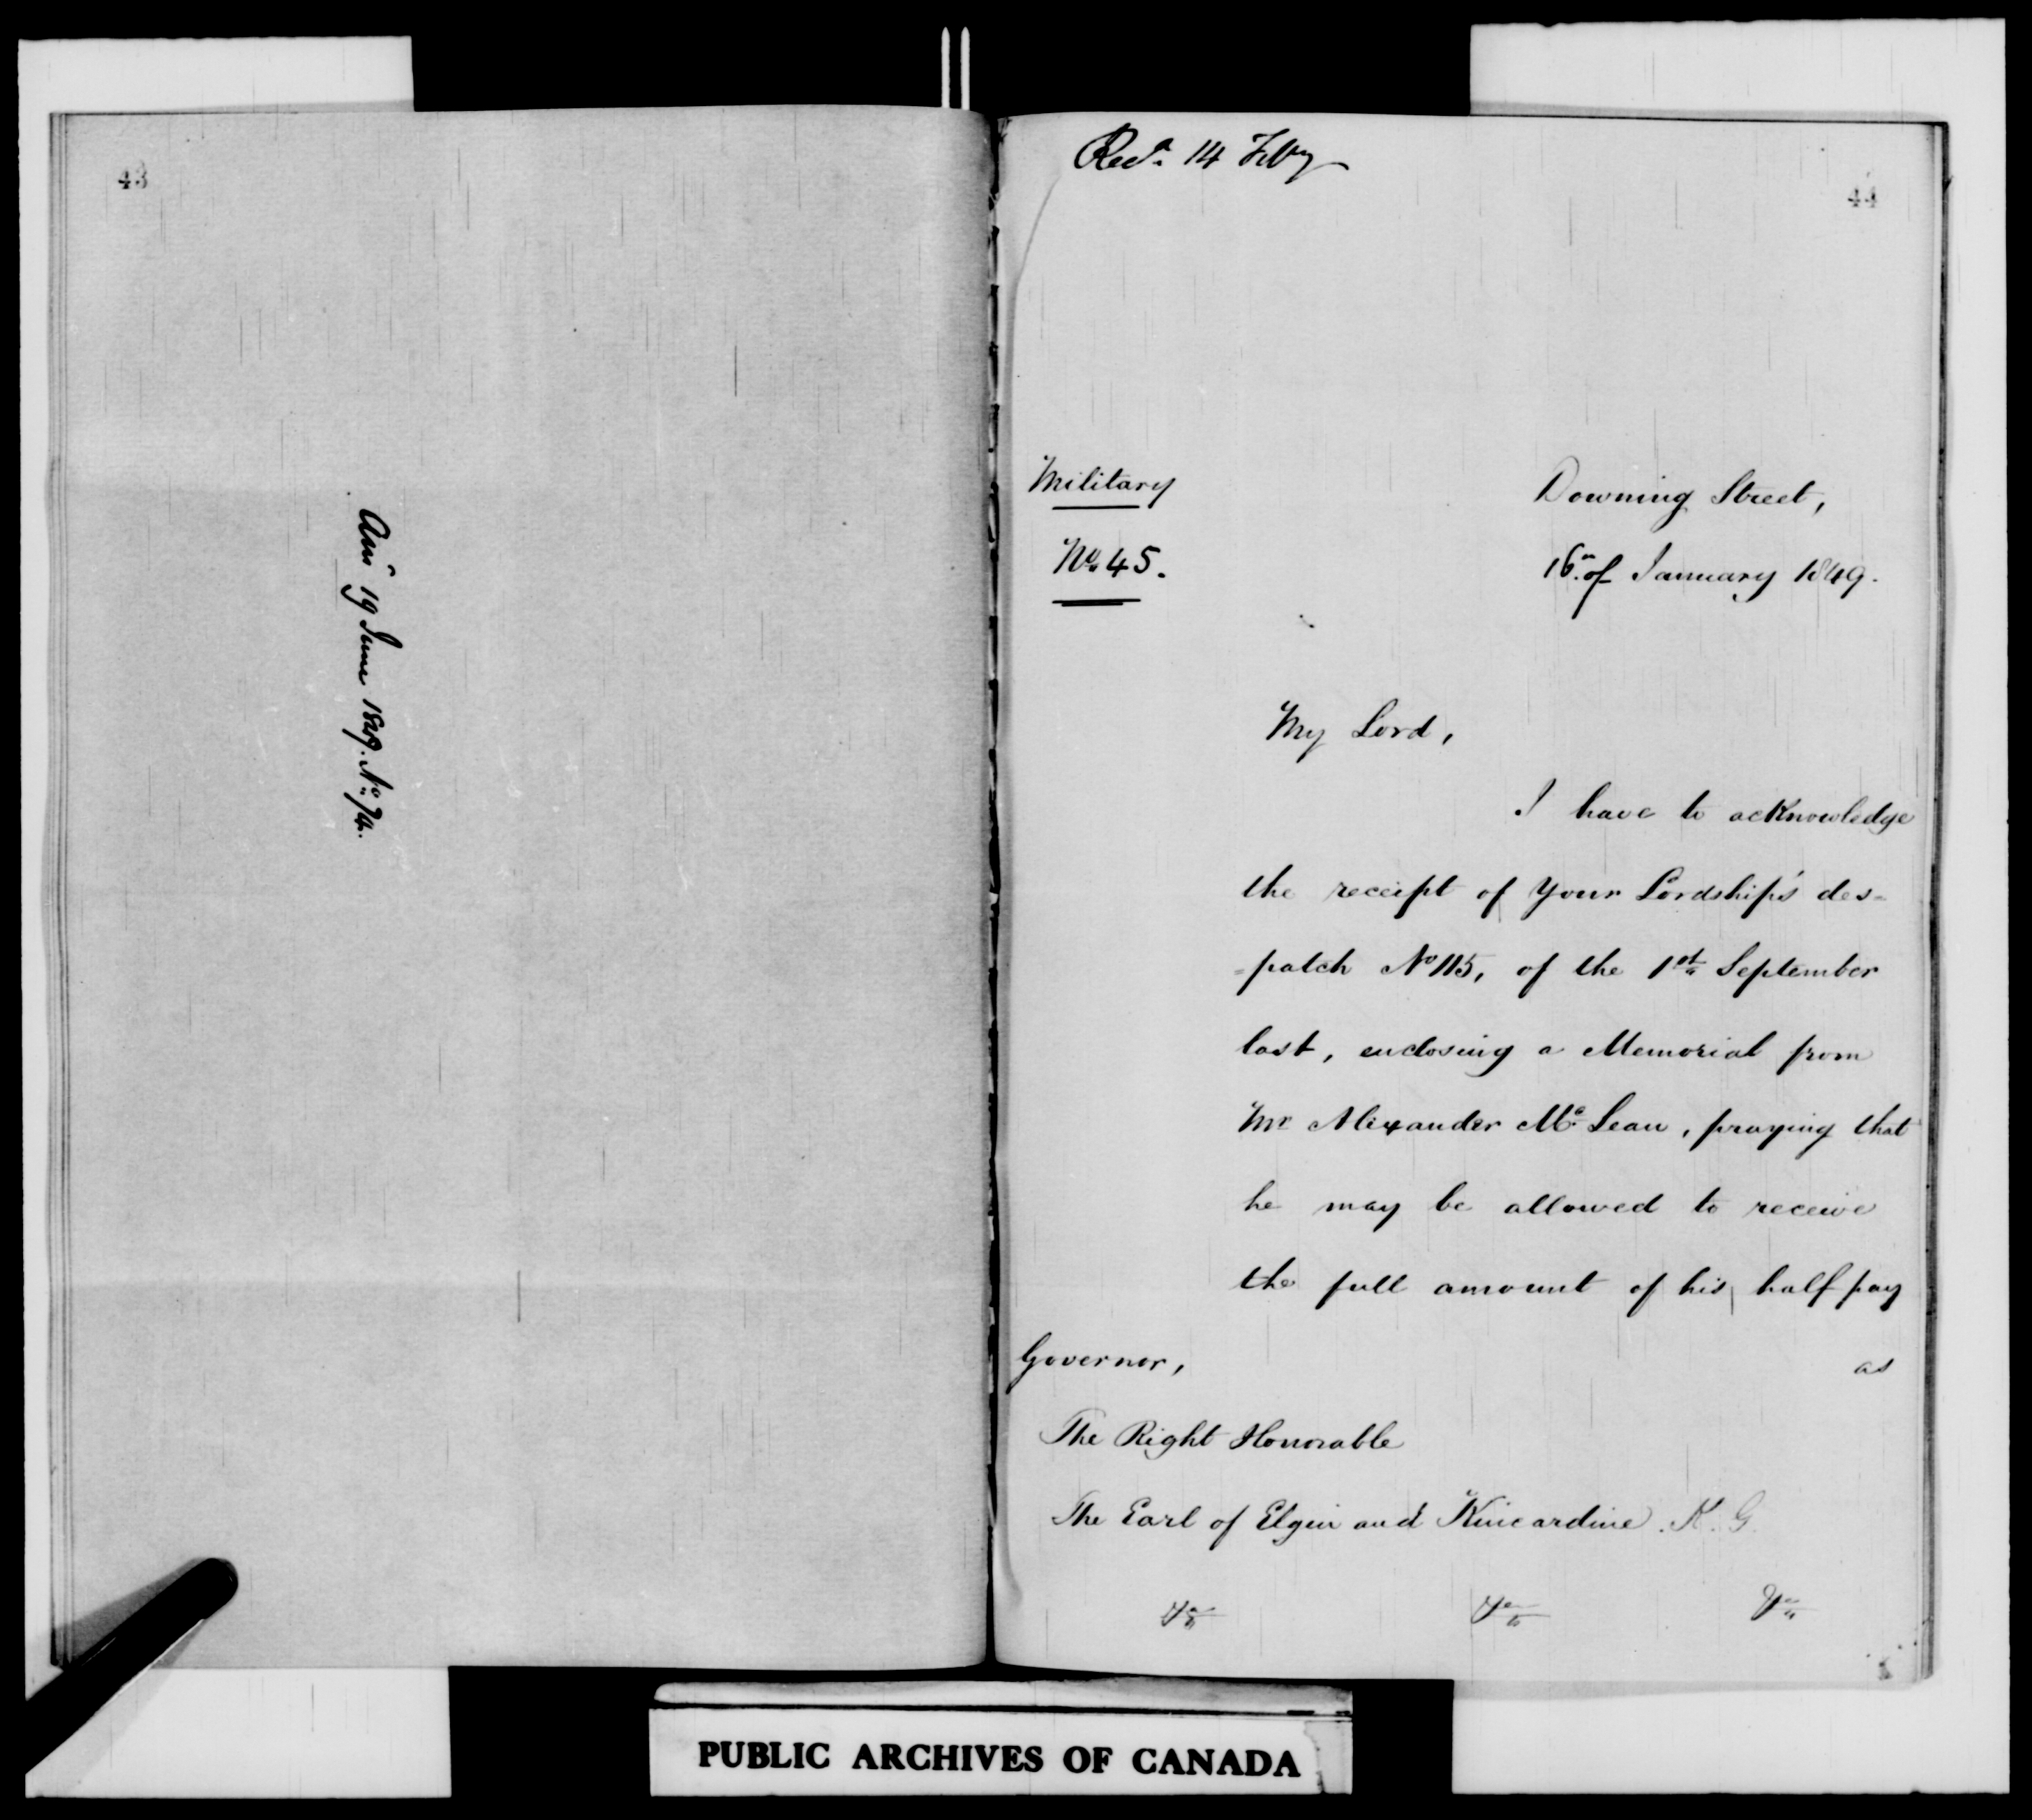 43
Ansd 19 June 1849. No. 74.
Recd. 14 Feby
44
Military
No. 45.
Downing Street,
16. of January 1849.
My Lord,
I have to acknowledge
the receipt of Your Lordship's des=
=patch No 115, of the 1st September
last, enclosing a Memorial from
Mr Alexander Mc Lean, praying that
he may be allowed to receive
the full amount of his half pay
as
Governor,
The Right Honorable
The Earl of Elgin and Kincardine. K. G.
PUBLIC ARCHIVES OF CANADA